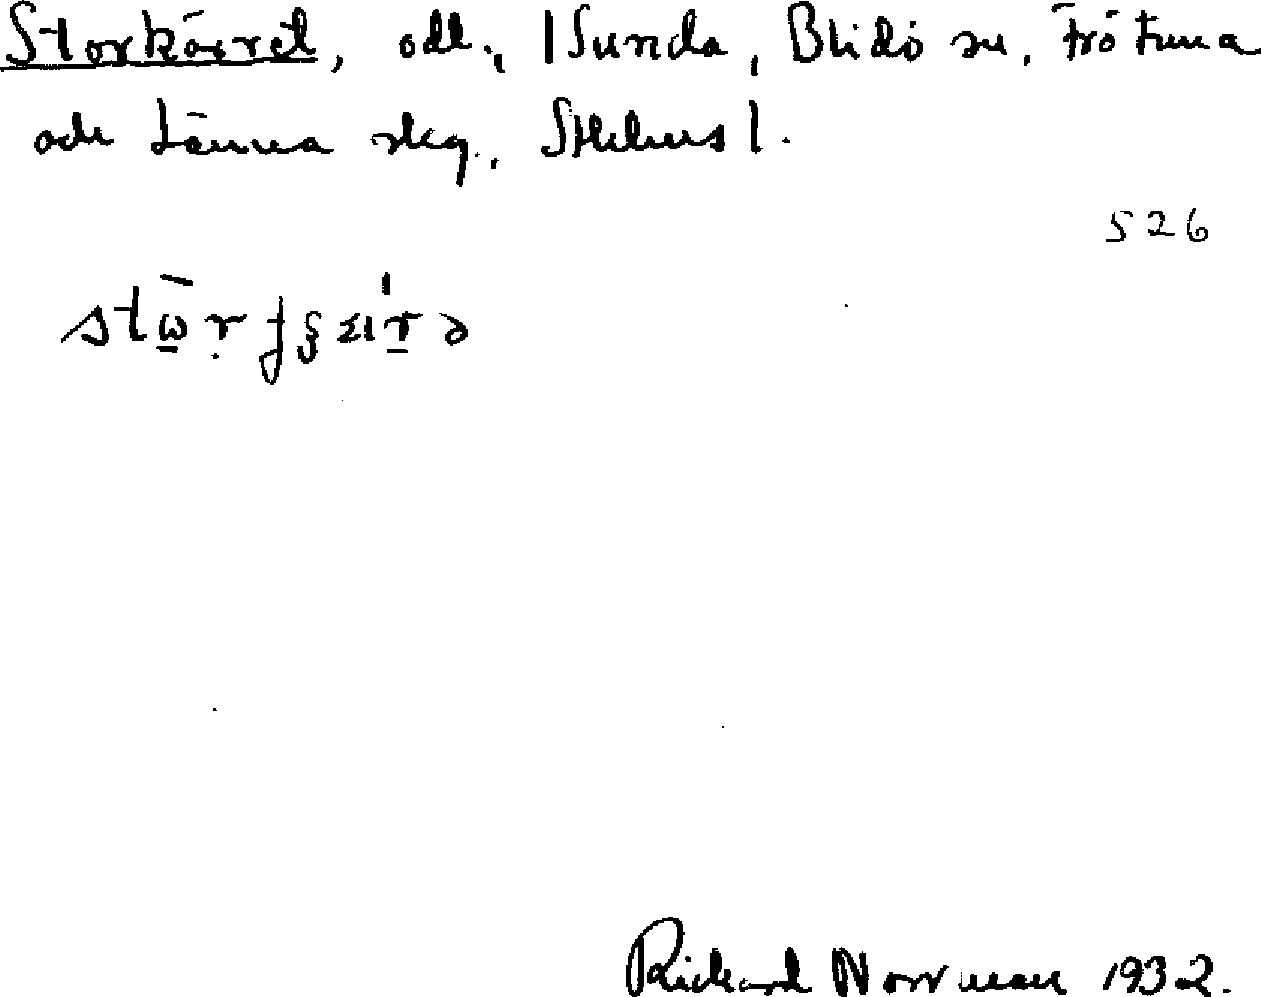 Storkärret, odl., 1 Sunda, Blidö sn, Frötuna
och Länna skg., Sthlms l.
526
Richard Norrman 1932.